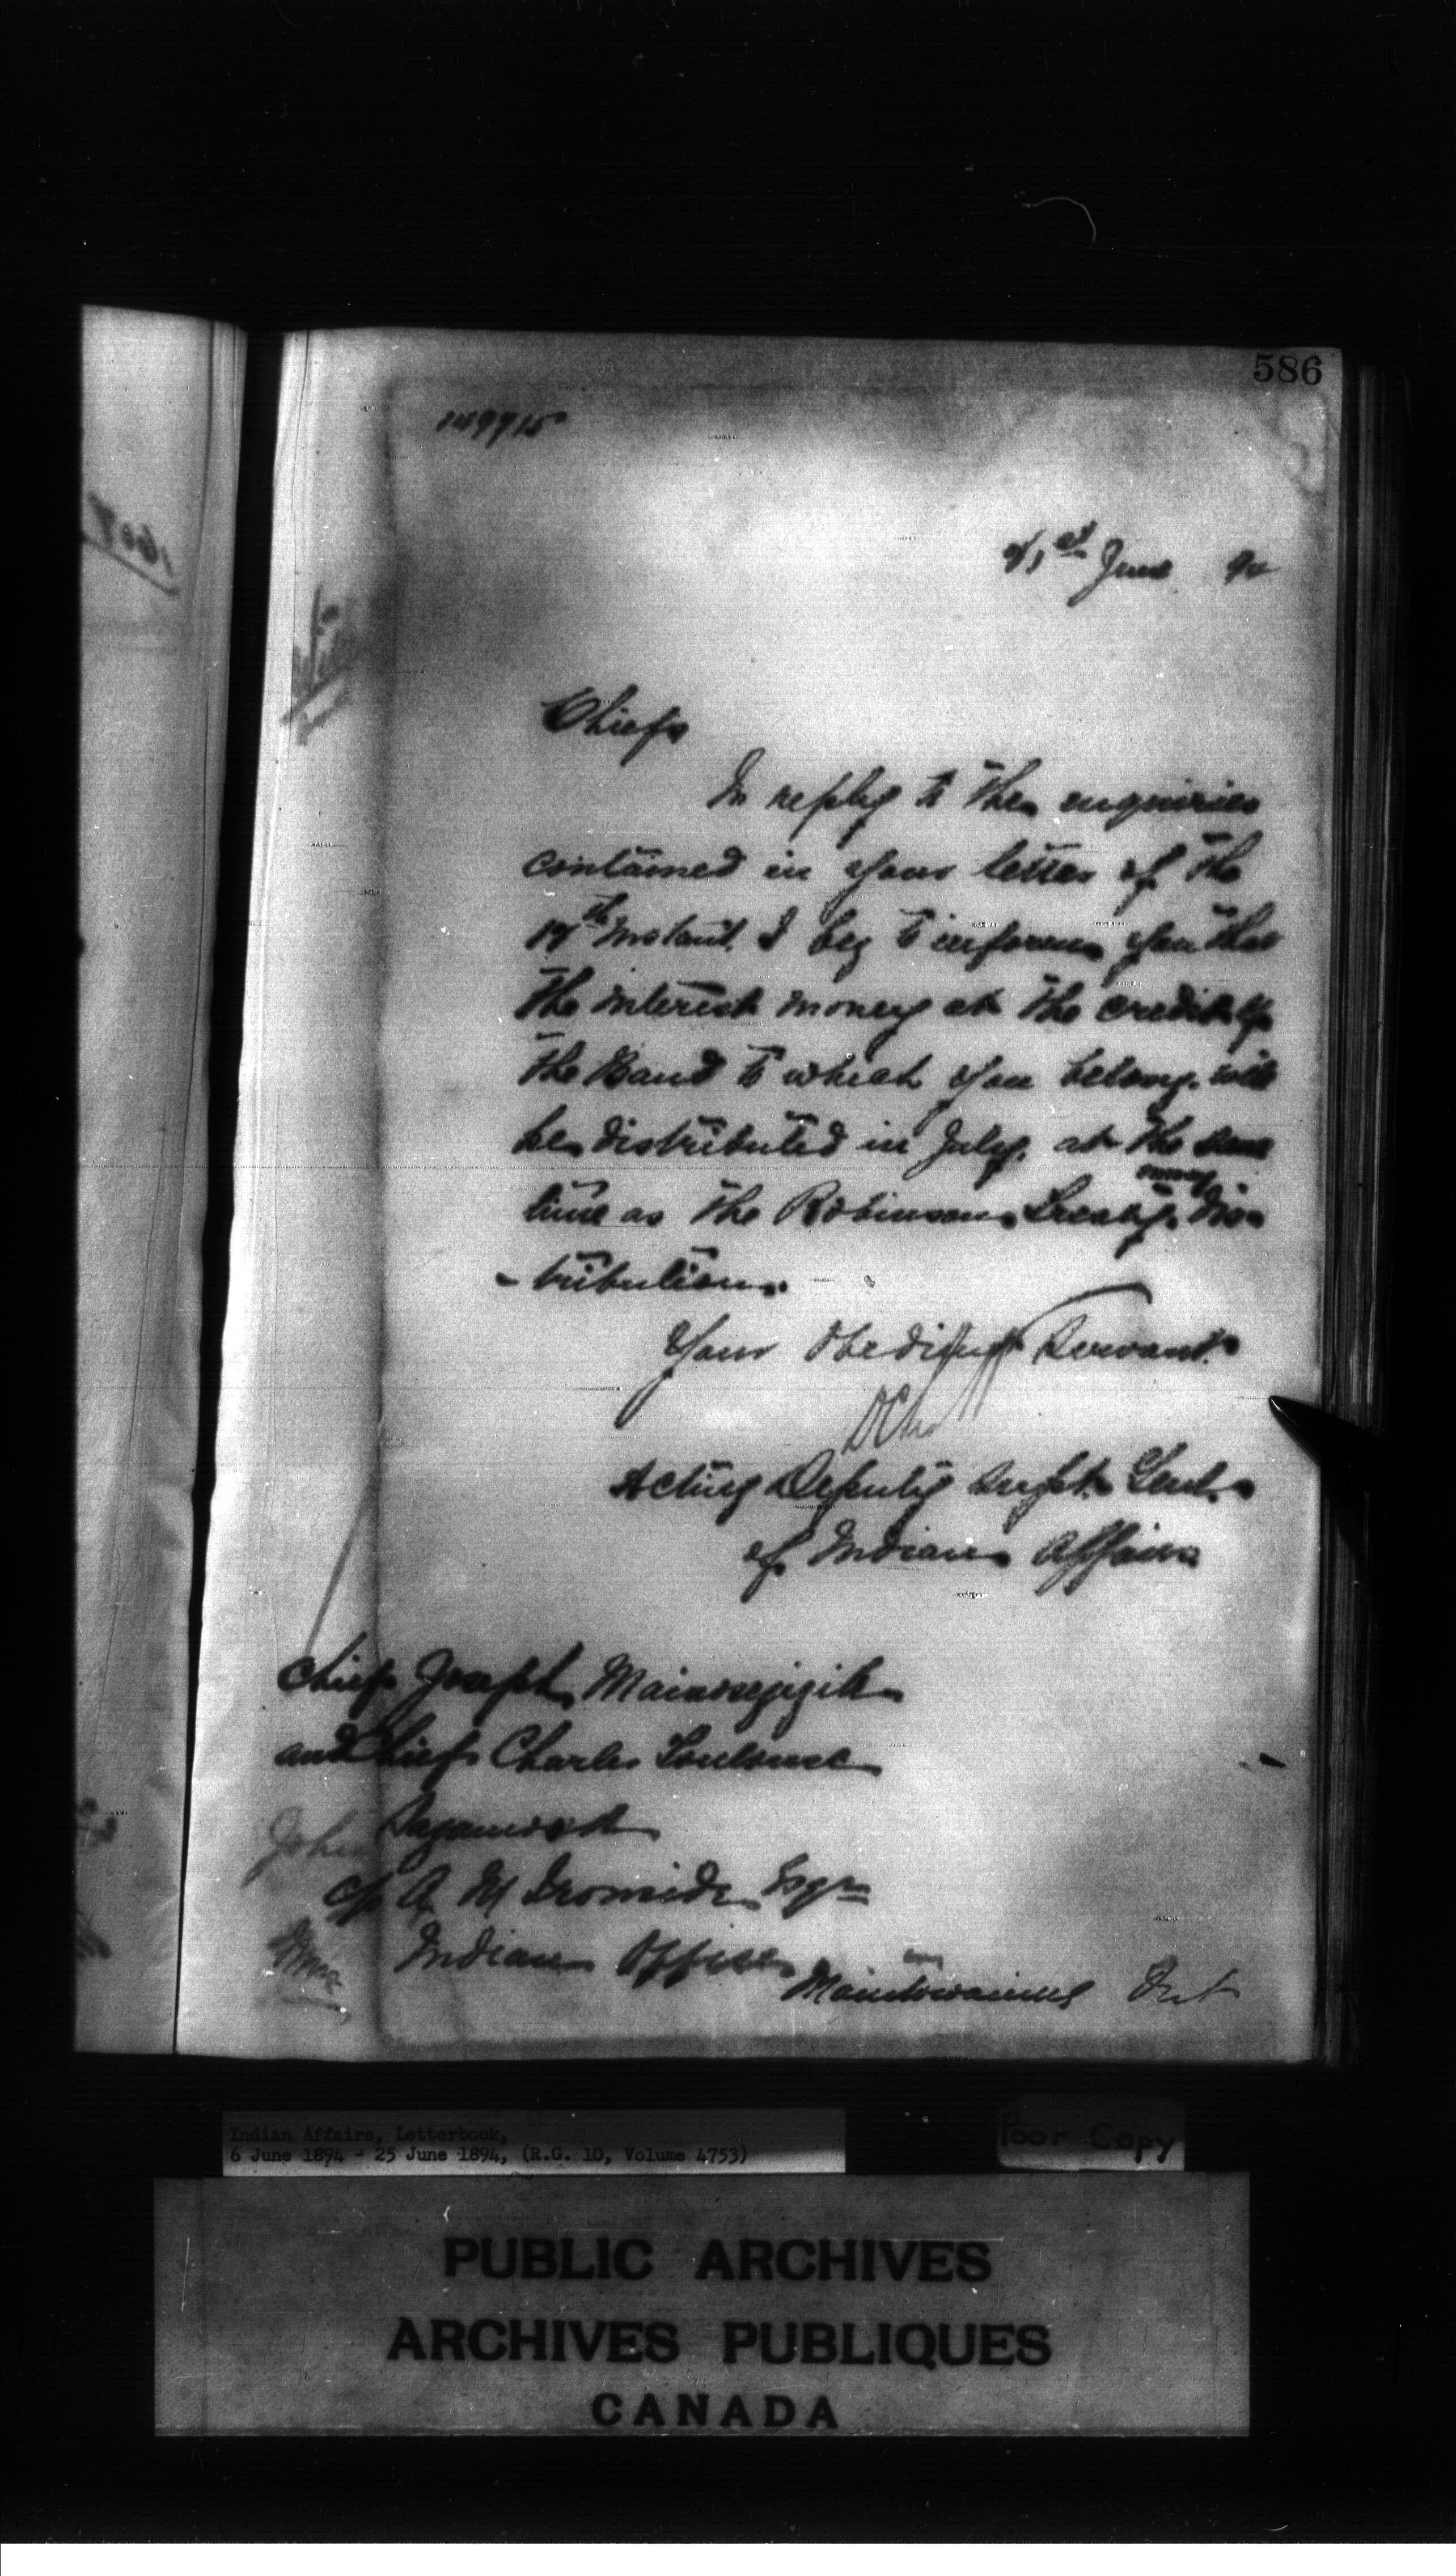 586
149915
21st June 94
Chiefs
In reply to the enquiries
contained in your letter of the
Instant. I beg to inform you that
the interest money at the credit of
the Band to which you belong will
be distributed in July, at the same
money
time as the Robinson Treaty Dis
-tribution.
Your Obedient Servant.
Acting Deputy Supt. Genl.
of Indian Affairs
Chief Joseph
and Chief Charles
John
c/o A M Ironside Esqre
Indian Office
Manitowaning Ont
Indian Affairs, Letterbook,
6 June 1894 - 25 June 1894, (R.G. 10, Volume 4753)
Poor Copy
PUBLIC ARCHIVES
ARCHIVES PUBLIQUES
CANADA